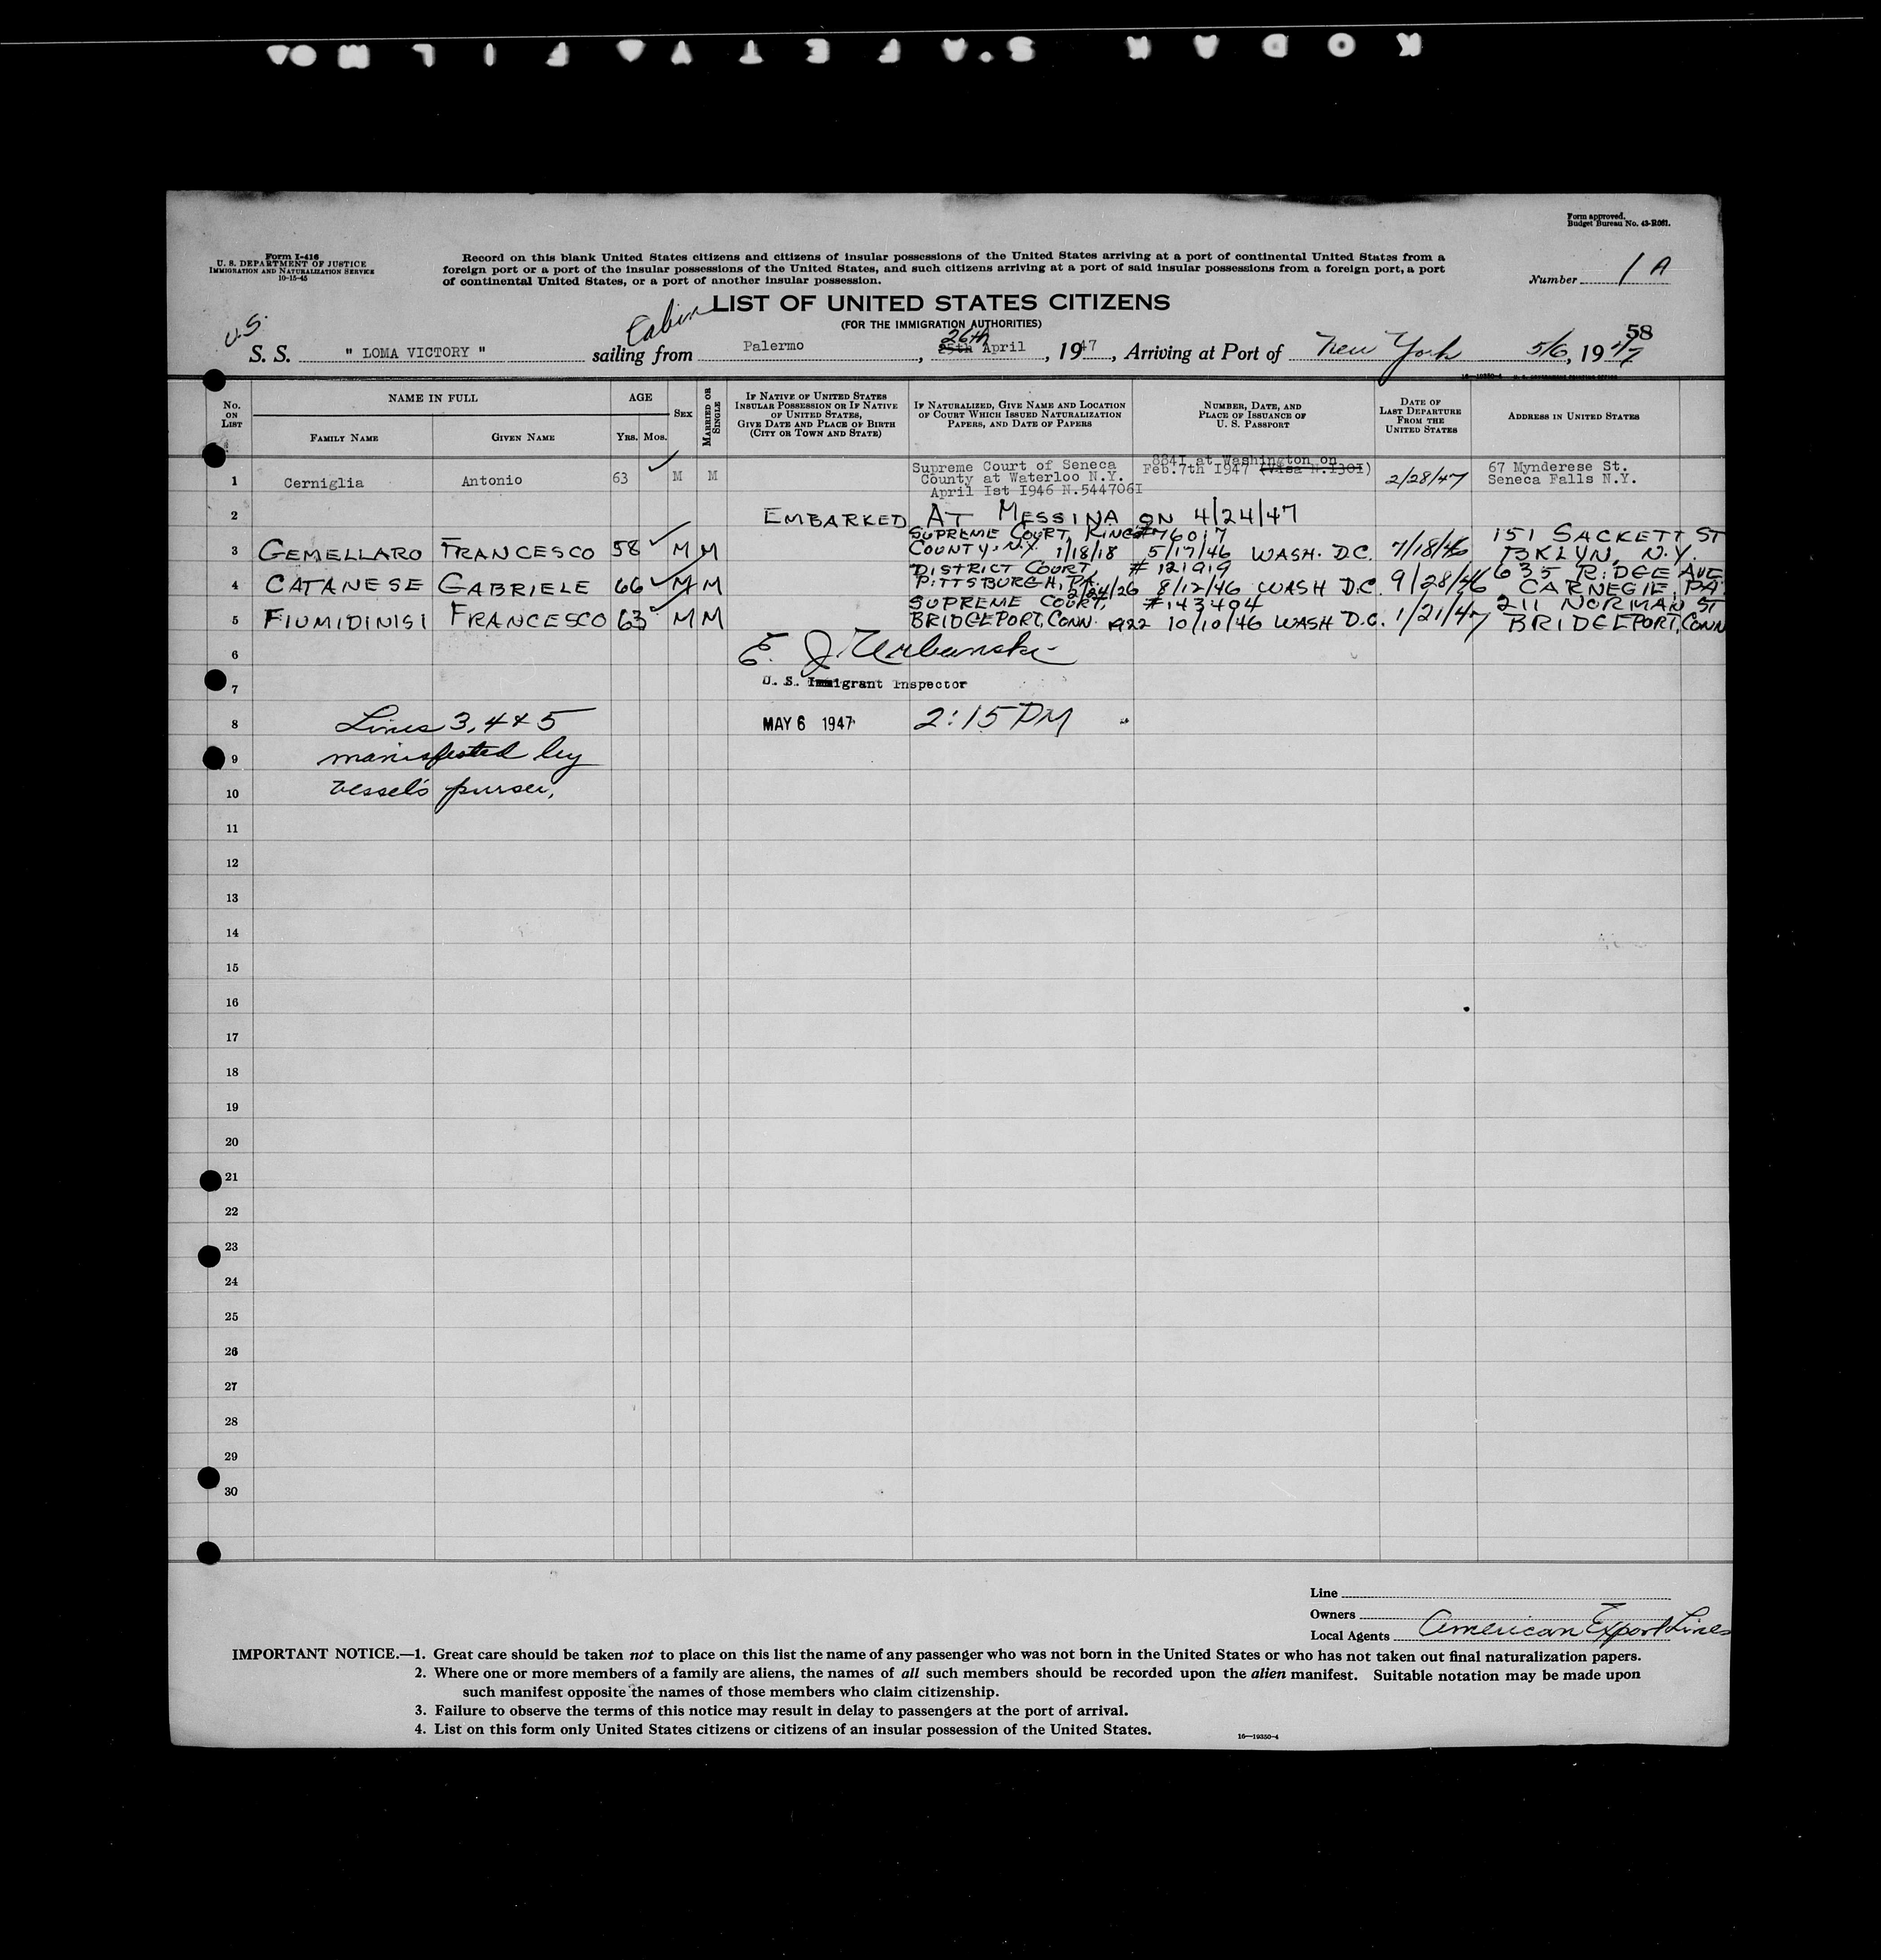 KODAK SAFETY FILM
Form approved.
Budget Bureau No. 43-R081.
Form I-416
U. S. DEPARTMENT OF JUSTICE
IMMIGRATION AND NATURALIZATION SERVICE
10-15-45
Record on this blank United States citizens and citizens of insular possessions of the United States arriving at a port of continental United States from a
foreign port or a port of the insular possessions of the United States, and such citizens arriving at a port of said insular possessions from a foreign port, a port
of continental United States, or a port of another insular possession.
Number 1 A
LIST OF UNITED STATES CITIZENS
(FOR THE IMMIGRATION AUTHORITIES)
U.S. Cabin 26th 58
S. S. " LOMA VICTORY " sailing from Palermo, 25th April, 1947, Arriving at Port of New York 5/6, 1947
No. ON LIST
NAME IN FULL
FAMILY NAME GIVEN NAME
AGE
YRS. MOS.
SEX
MARRIED OR SINGLE
IF NATIVE OF UNITED STATES
INSULAR POSSESSION OR IF NATIVE
OF UNITED STATES,
GIVE DATE AND PLACE OF BIRTH
(CITY OR TOWN AND STATE)
IF NATURALIZED, GIVE NAME AND LOCATION
OF COURT WHICH ISSUED NATURALIZATION
PAPERS, AND DATE OF PAPERS
NUMBER, DATE, AND
PLACE OF ISSUANCE OF
U. S. PASSPORT
DATE OF
LAST DEPARTURE
FROM THE
UNITED STATES
ADDRESS IN UNITED STATES
1 Cerniglia Antonio 63 M M
Supreme Court of Seneca
County at Waterloo N.Y.
April Ist I946 N.544706I
884I at Washington on
Feb.7th I947 (Visa N.I30I)
2/28/47
67 Mynderese St.
Seneca Falls N.Y.
2 EMBARKED AT MESSINA ON 4/24/47
3 GEMELLARO FRANCESCO 58 M M
SUPREME COURT, KINGS
COUNTY, N.Y. 1/18/18
#76017
5/17/46 WASH. D.C.
7/18/46
151 SACKETT ST
BKLYN, N.Y.
4 CATANESE GABRIELE 66 M M
DISTRICT COURT,
PITTSBURGH, PA. 2/24/26
# 121919
8/12/46 WASH D.C.
9/28/46
635 RIDGE AVE
CARNEGIE, PA.
5 FIUMIDINISI FRANCESCO 63 M M
SUPREME COURT,
BRIDGEPORT, CONN. 1922
#143404
10/10/46 WASH D.C.
1/21/47
211 NORMAN ST
BRIDGEPORT, CONN
6 E. J. Urbanski
7 U. S. Immigrant Inspector
8 Lines 3, 4 & 5 MAY 6 1947 2:15 PM
9 manifested by
10 vessel's purser.
11
12
13
14
15
16
17
18
19
20
21
22
23
24
25
26
27
28
29
30
Line
Owners
Local Agents American Export Lines
IMPORTANT NOTICE.—1. Great care should be taken not to place on this list the name of any passenger who was not born in the United States or who has not taken out final naturalization papers.
2. Where one or more members of a family are aliens, the names of all such members should be recorded upon the alien manifest. Suitable notation may be made upon
such manifest opposite the names of those members who claim citizenship.
3. Failure to observe the terms of this notice may result in delay to passengers at the port of arrival.
4. List on this form only United States citizens or citizens of an insular possession of the United States.
16—19350-4